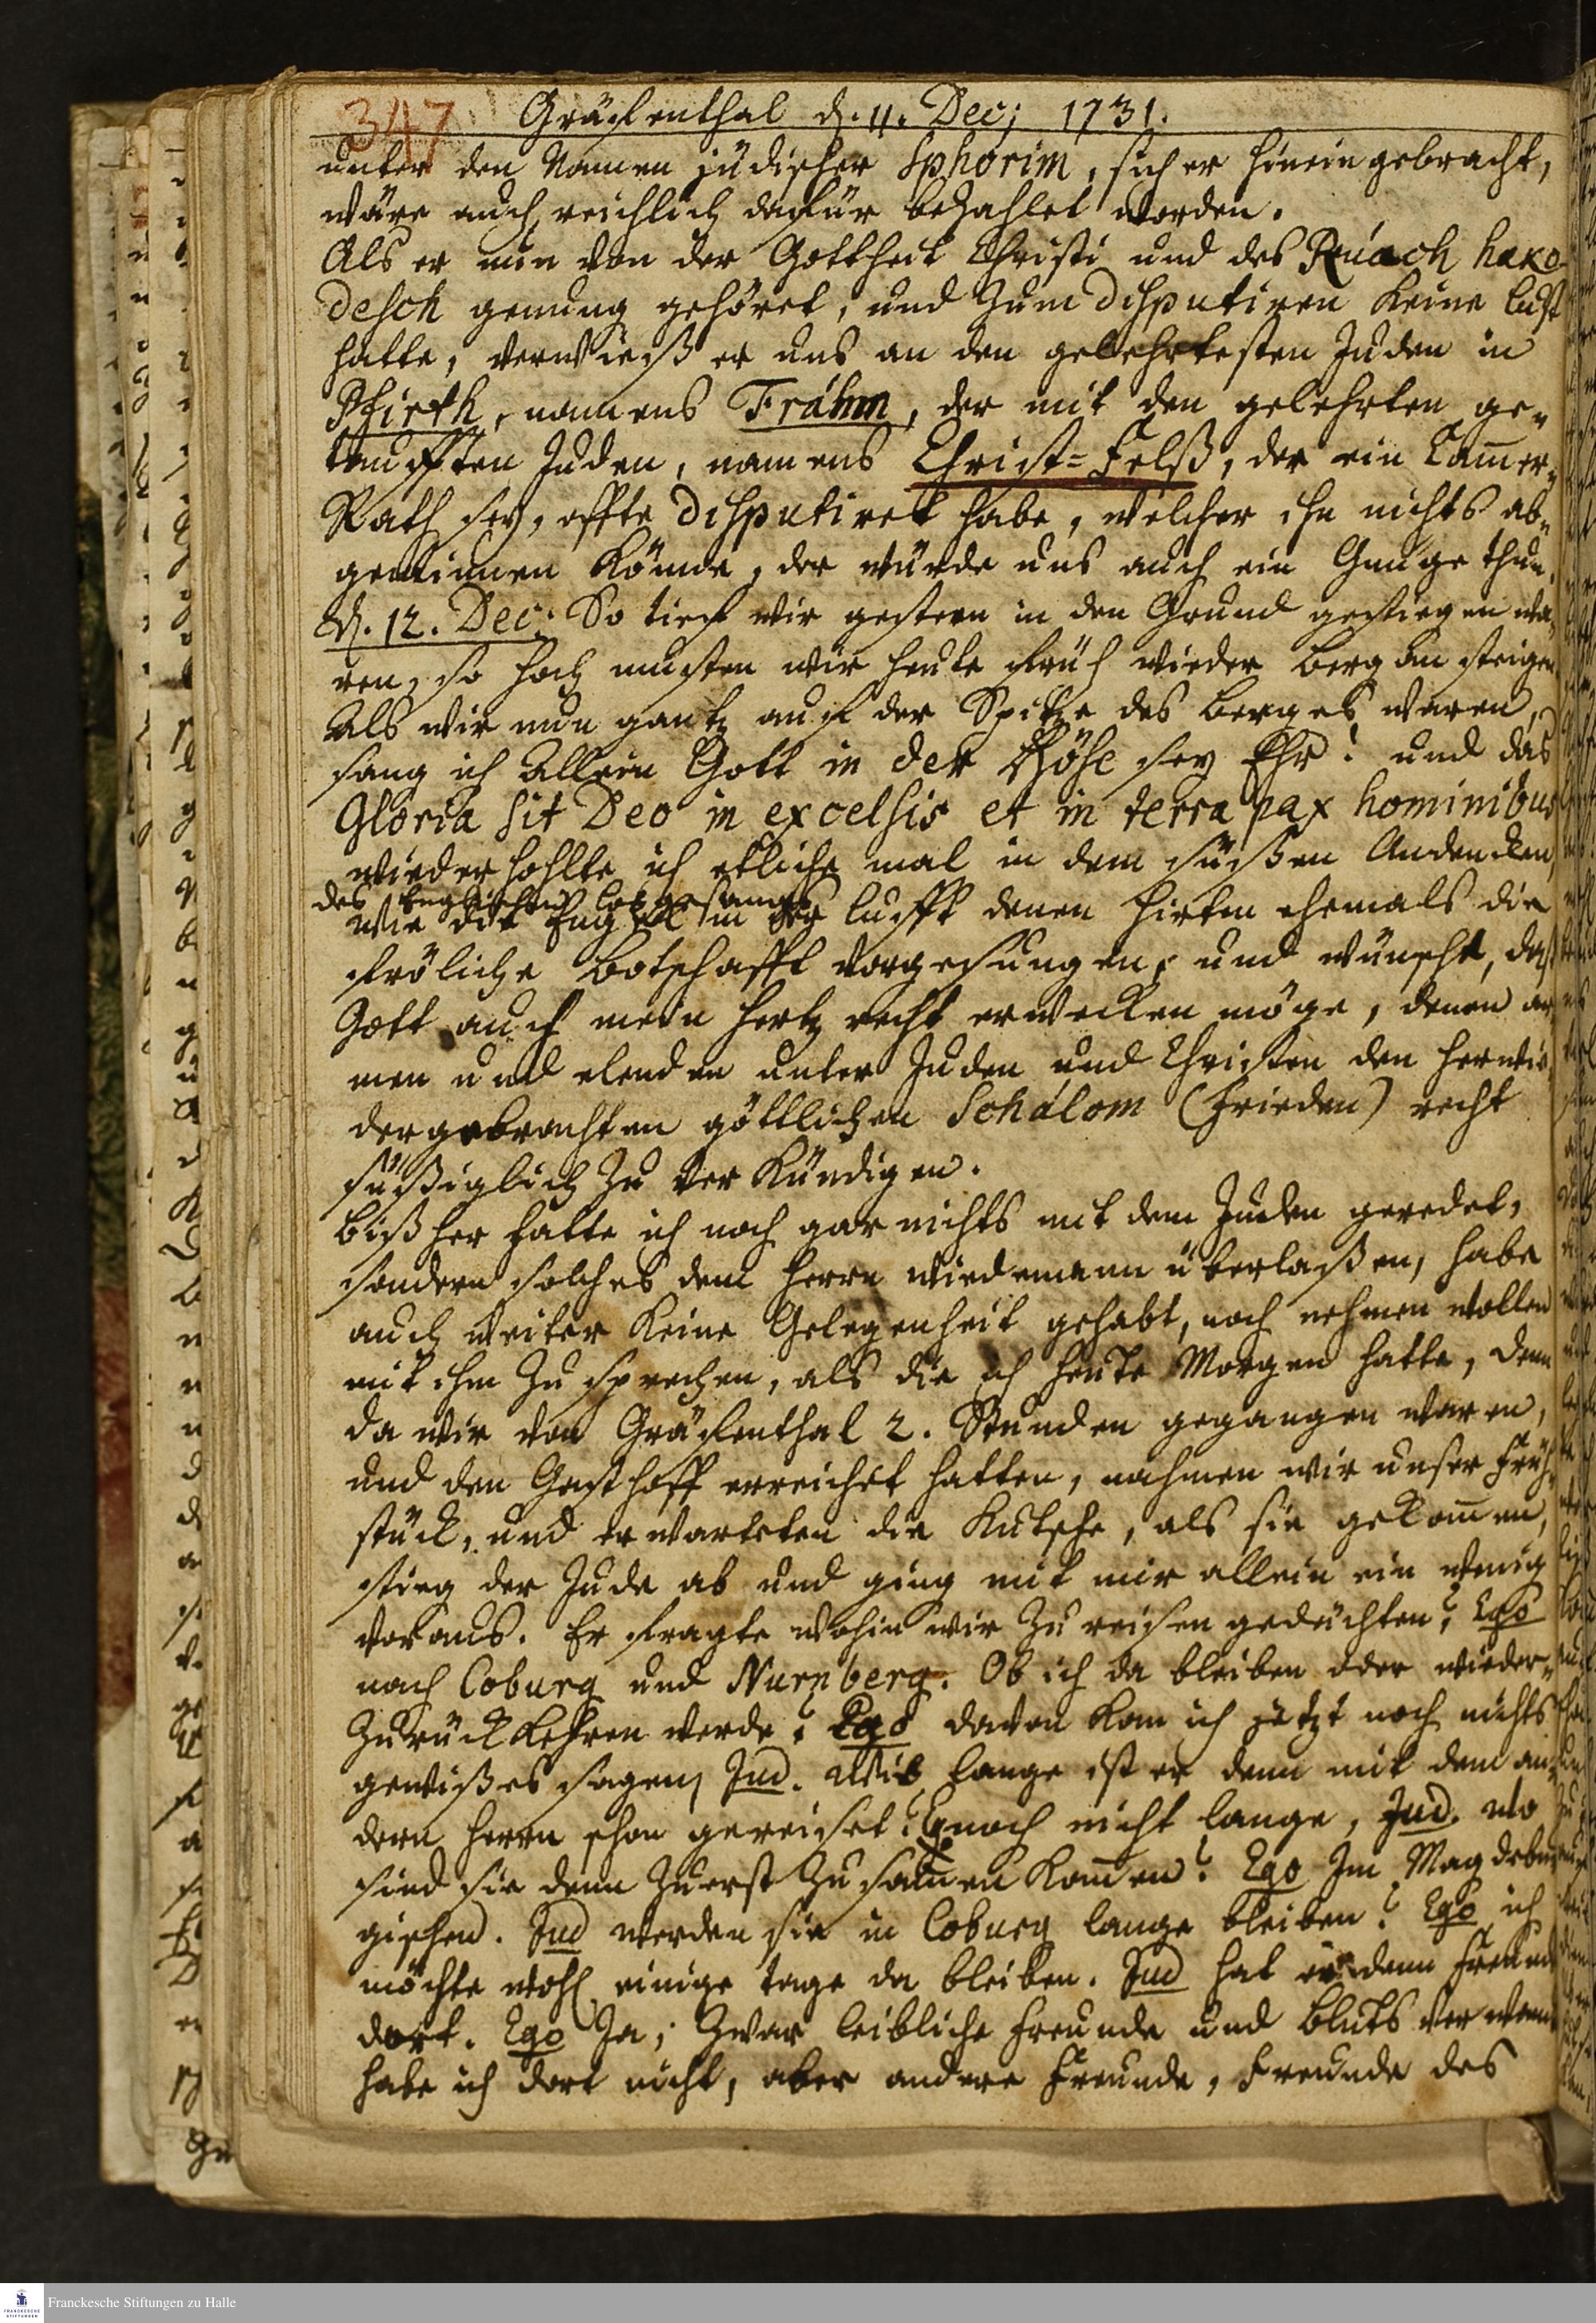 347 Gräfenthal d. 11. Dec; 1731.
unter den Namen jüdischer Sphorim, sich er hineingebracht,
wäre auch reichlich dafür bezahlet worden.
Als er nun von der Gottheit Christi und des Ruach hako-
desch genung gehöret, und zum disputiren keine lust
hatte, verwieß er uns an den gelehrtesten Juden in
Pfirth, namens Frähm, der mit den gelehrten ge-
taufften Juden, namens Christ=Felß, der ein Cam̄er-
Rath sey, offte disputiret habe, welcher ihn nichts ab-
gewinnen könne, der würde uns auch ein Gnüge thun.
d. 12. Dec: So tief wir gestern in den Grund gestiegen wa-
ren, so hoch musten wir heute früh wieder berg an steigen
Als wir nun gantz auf der Spitze des berges waren,
sang ich Allein Gott in der Höhe sey Ehr! und das
Gloria sit Deo in excelsis et in terra pax hominibus
wiederhohlte ich etliche mal in dem süßen Andencken,
des Englischen lobgesangs
wie die Engel in der lufft denen Hirten ehemals die
fröliche Botschafft vorgesungen, und wünscht, daß
Gott auch mein Hertz recht erwecken möge, denen ar-
men und elenden unter Juden und Christen den herwie-
dergebrachten göttlichen Schalom (Frieden) recht
süßiglich zu verkündigen.
bißher hatte ich noch gar nichts mit dem Juden geredet,
sondern solches dem Herrn Wiedemann überlaßen, habe
auch weiter keine Gelegenheit gehabt, noch nehmen wollen
mit ihm zu sprechen, als die ich heute Morgen hatte, denn
da wir von Gräfenthal 2. Stunden gegangen waren,
und den Gasthoff erreichet hatten, nahmen wir unser Früh-
stück, und erwarteten die Kutsche, als sie gekom̄en,
stieg der Jude ab und ging mit mir allein ein wenig
voraus. Er fragte wohin wir zu reisen gedächten? Ego
nach Coburg und Nurnberg. Ob ich da bleiben oder wieder-
zurück kehren werde? Ego davon kan ich jetzt noch nichts
gewißes sagen, Jud. Wie lange ist er denn mit dem an-
dern Herrn schon gereiset? Ego noch nicht lange, Jud. wo
sind sie denn zuerst zusam̄en kom̄en? Ego Im Magdebur-
gischen. Jud werden sie in Coburg lange bleiben? Ego ich
möchte wohl einige tage da bleiben. Jud hat er denn Freunde
dort. Ego Ja; zwar leibliche Freunde und bluts verwan-
habe ich dort nicht, aber andere Freunde, Freunde des
Franckesche Stiftungen zu Halle